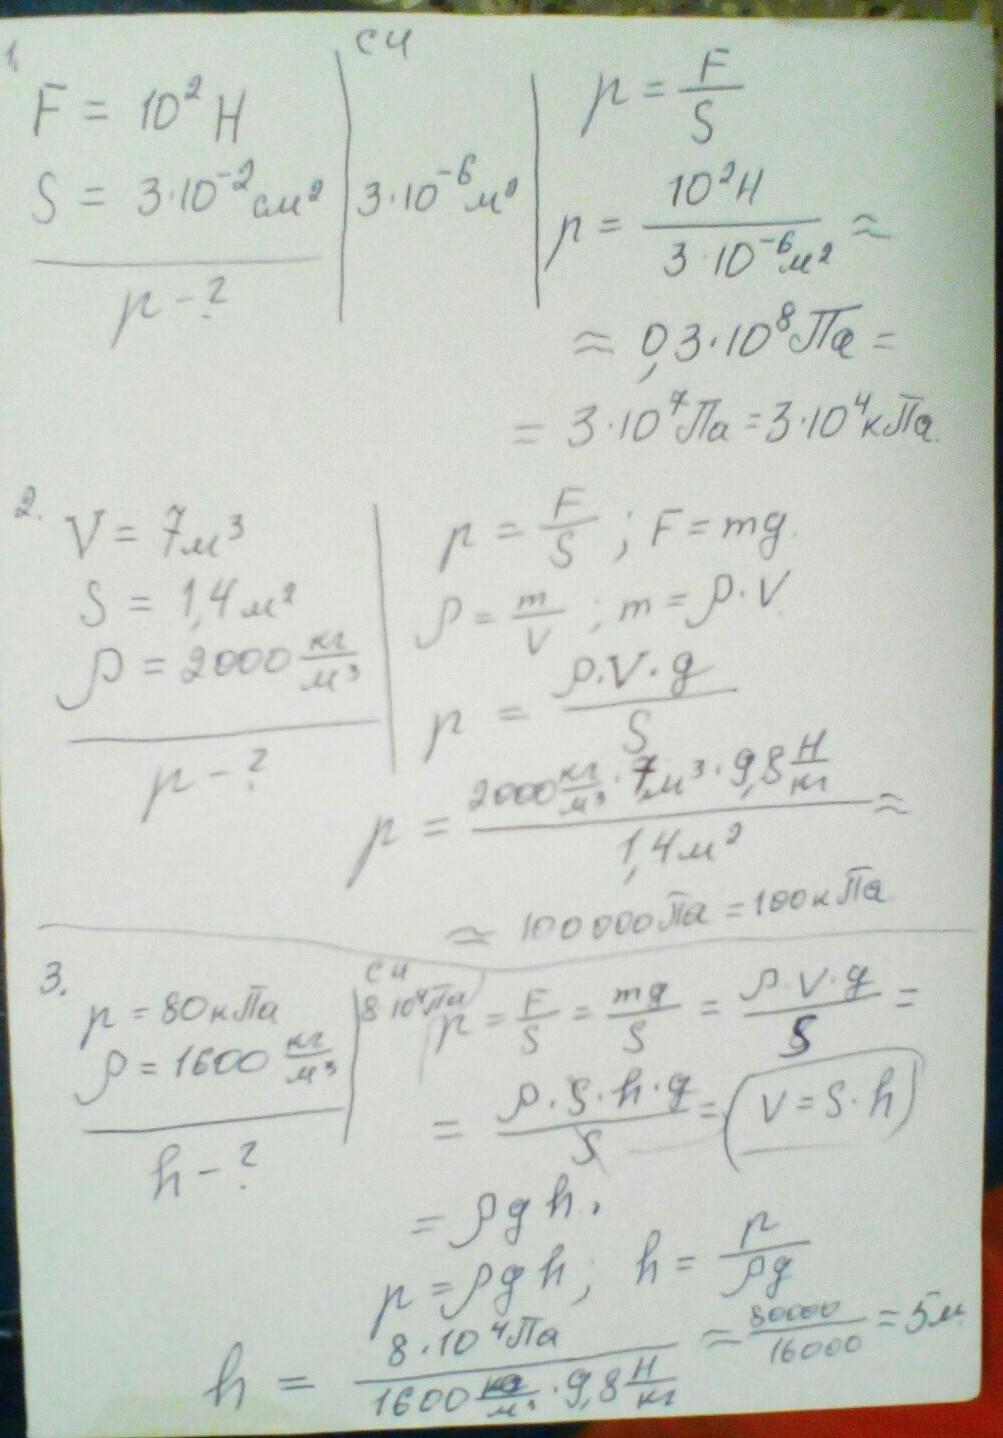 1.
СИ
F = 10² Н
S = 3·10⁻² см²
3·10⁻⁶ м²
p - ?
p = F/S
p = 10² Н / 3·10⁻⁶ м² ≈
≈ 0,3·10⁸ Па =
= 3·10⁷ Па = 3·10⁴ кПа.
2.
V = 7 м³
S = 1,4 м²
ρ = 2000 кг/м³
p - ?
p = F/S ; F = mg.
ρ = m/V ; m = ρ·V.
p = ρ·V·g / S
p = 2000 кг/м³ · 7 м³ · 9,8 Н/кг / 1,4 м² ≈
≈ 100 000 Па = 100 кПа
3.
СИ
p = 80 кПа
8·10⁴ Па
ρ = 1600 кг/м³
h - ?
p = F/S = mg/S = ρ·V·g / S =
= ρ·S·h·g / S = (V = S·h)
= ρgh.
p = ρgh; h = p/ρg
h = 8·10⁴ Па / 1600 кг/м³ · 9,8 Н/кг ≈ 80000/16000 = 5 м.